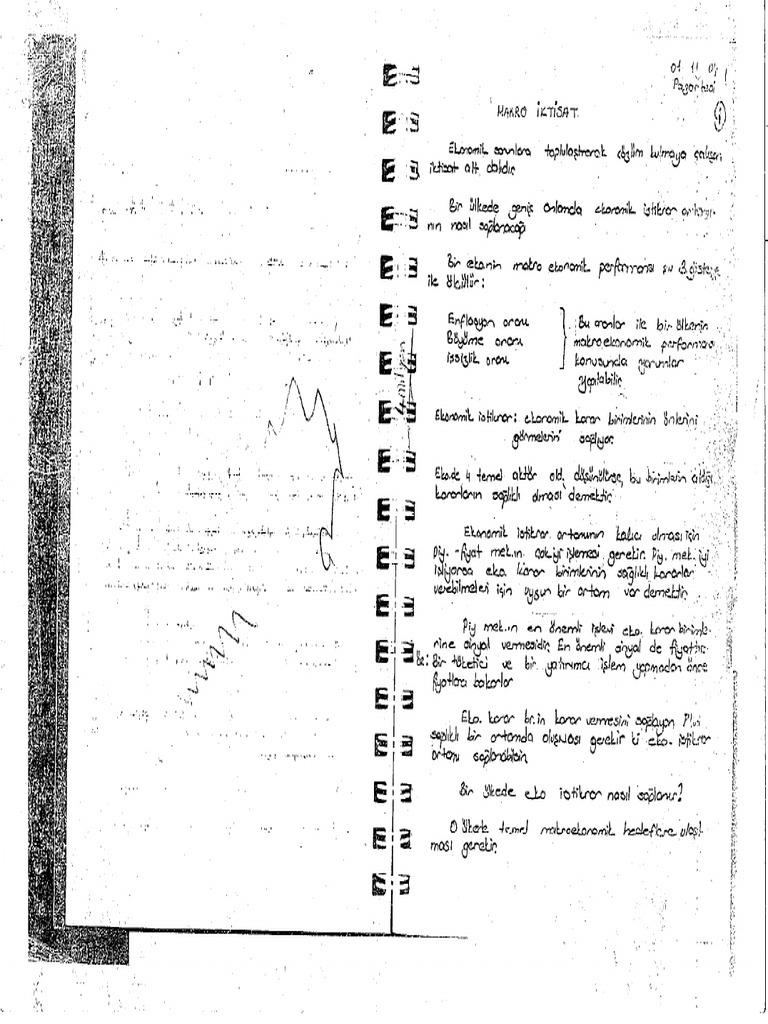 01 11 04
Pazartesi
1
MAKRO İKTİSAT
Ekonomik sorunlara toplulaştırarak çözüm bulmaya çalışan
iktisat alt dalıdır.
Bir ülkede geniş anlamda ekonomik istikrar ortamı-
nın nasıl sağlanacağı
Bir eko.nin makro ekonomik performansı şu 3 gösterge
ile ölçülür:
Enflasyon oranı
Büyüme oranı
İşsizlik oranı
Bu oranlar ile bir ülkenin
makroekonomik performası
konusunda yorumlar
yapılabilir.
4 milyon
Ekonomik istikrar: ekonomik karar birimlerinin önlerini
görmelerini sağlıyor.
Eko.de 4 temel aktör old. düşünülürse, bu birimlerin aldığı
kararların sağlıklı olması demektir.
Ekonomik istikrar ortamının kalıcı olması için
Piy. -fiyat mek.ın çok iyi işlemesi gerekir. Piy. mek. iyi
işliyorsa eko. karar birimlerinin sağlıklı kararlar
verebilmeleri için uygun bir ortam var demektir.
Piy mek.ın en önemli işlevi eko. karar birimle-
rine sinyal vermesidir. En önemli sinyal de fiyattır.
Ör: Bir tüketici ve bir yatırımcı işlem yapmadan önce
fiyatlara bakarlar
Eko. karar br.in karar vermesini sağlayan P'ın
sağlıklı bir ortamda oluşması gerekir ki eko. istikrar
ortamı sağlanabilsin.
Bir ülkede eko istikrar nasıl sağlanır?
O ülkede temel makroekonomik hedeflere ulaşıl-
ması gerekir.